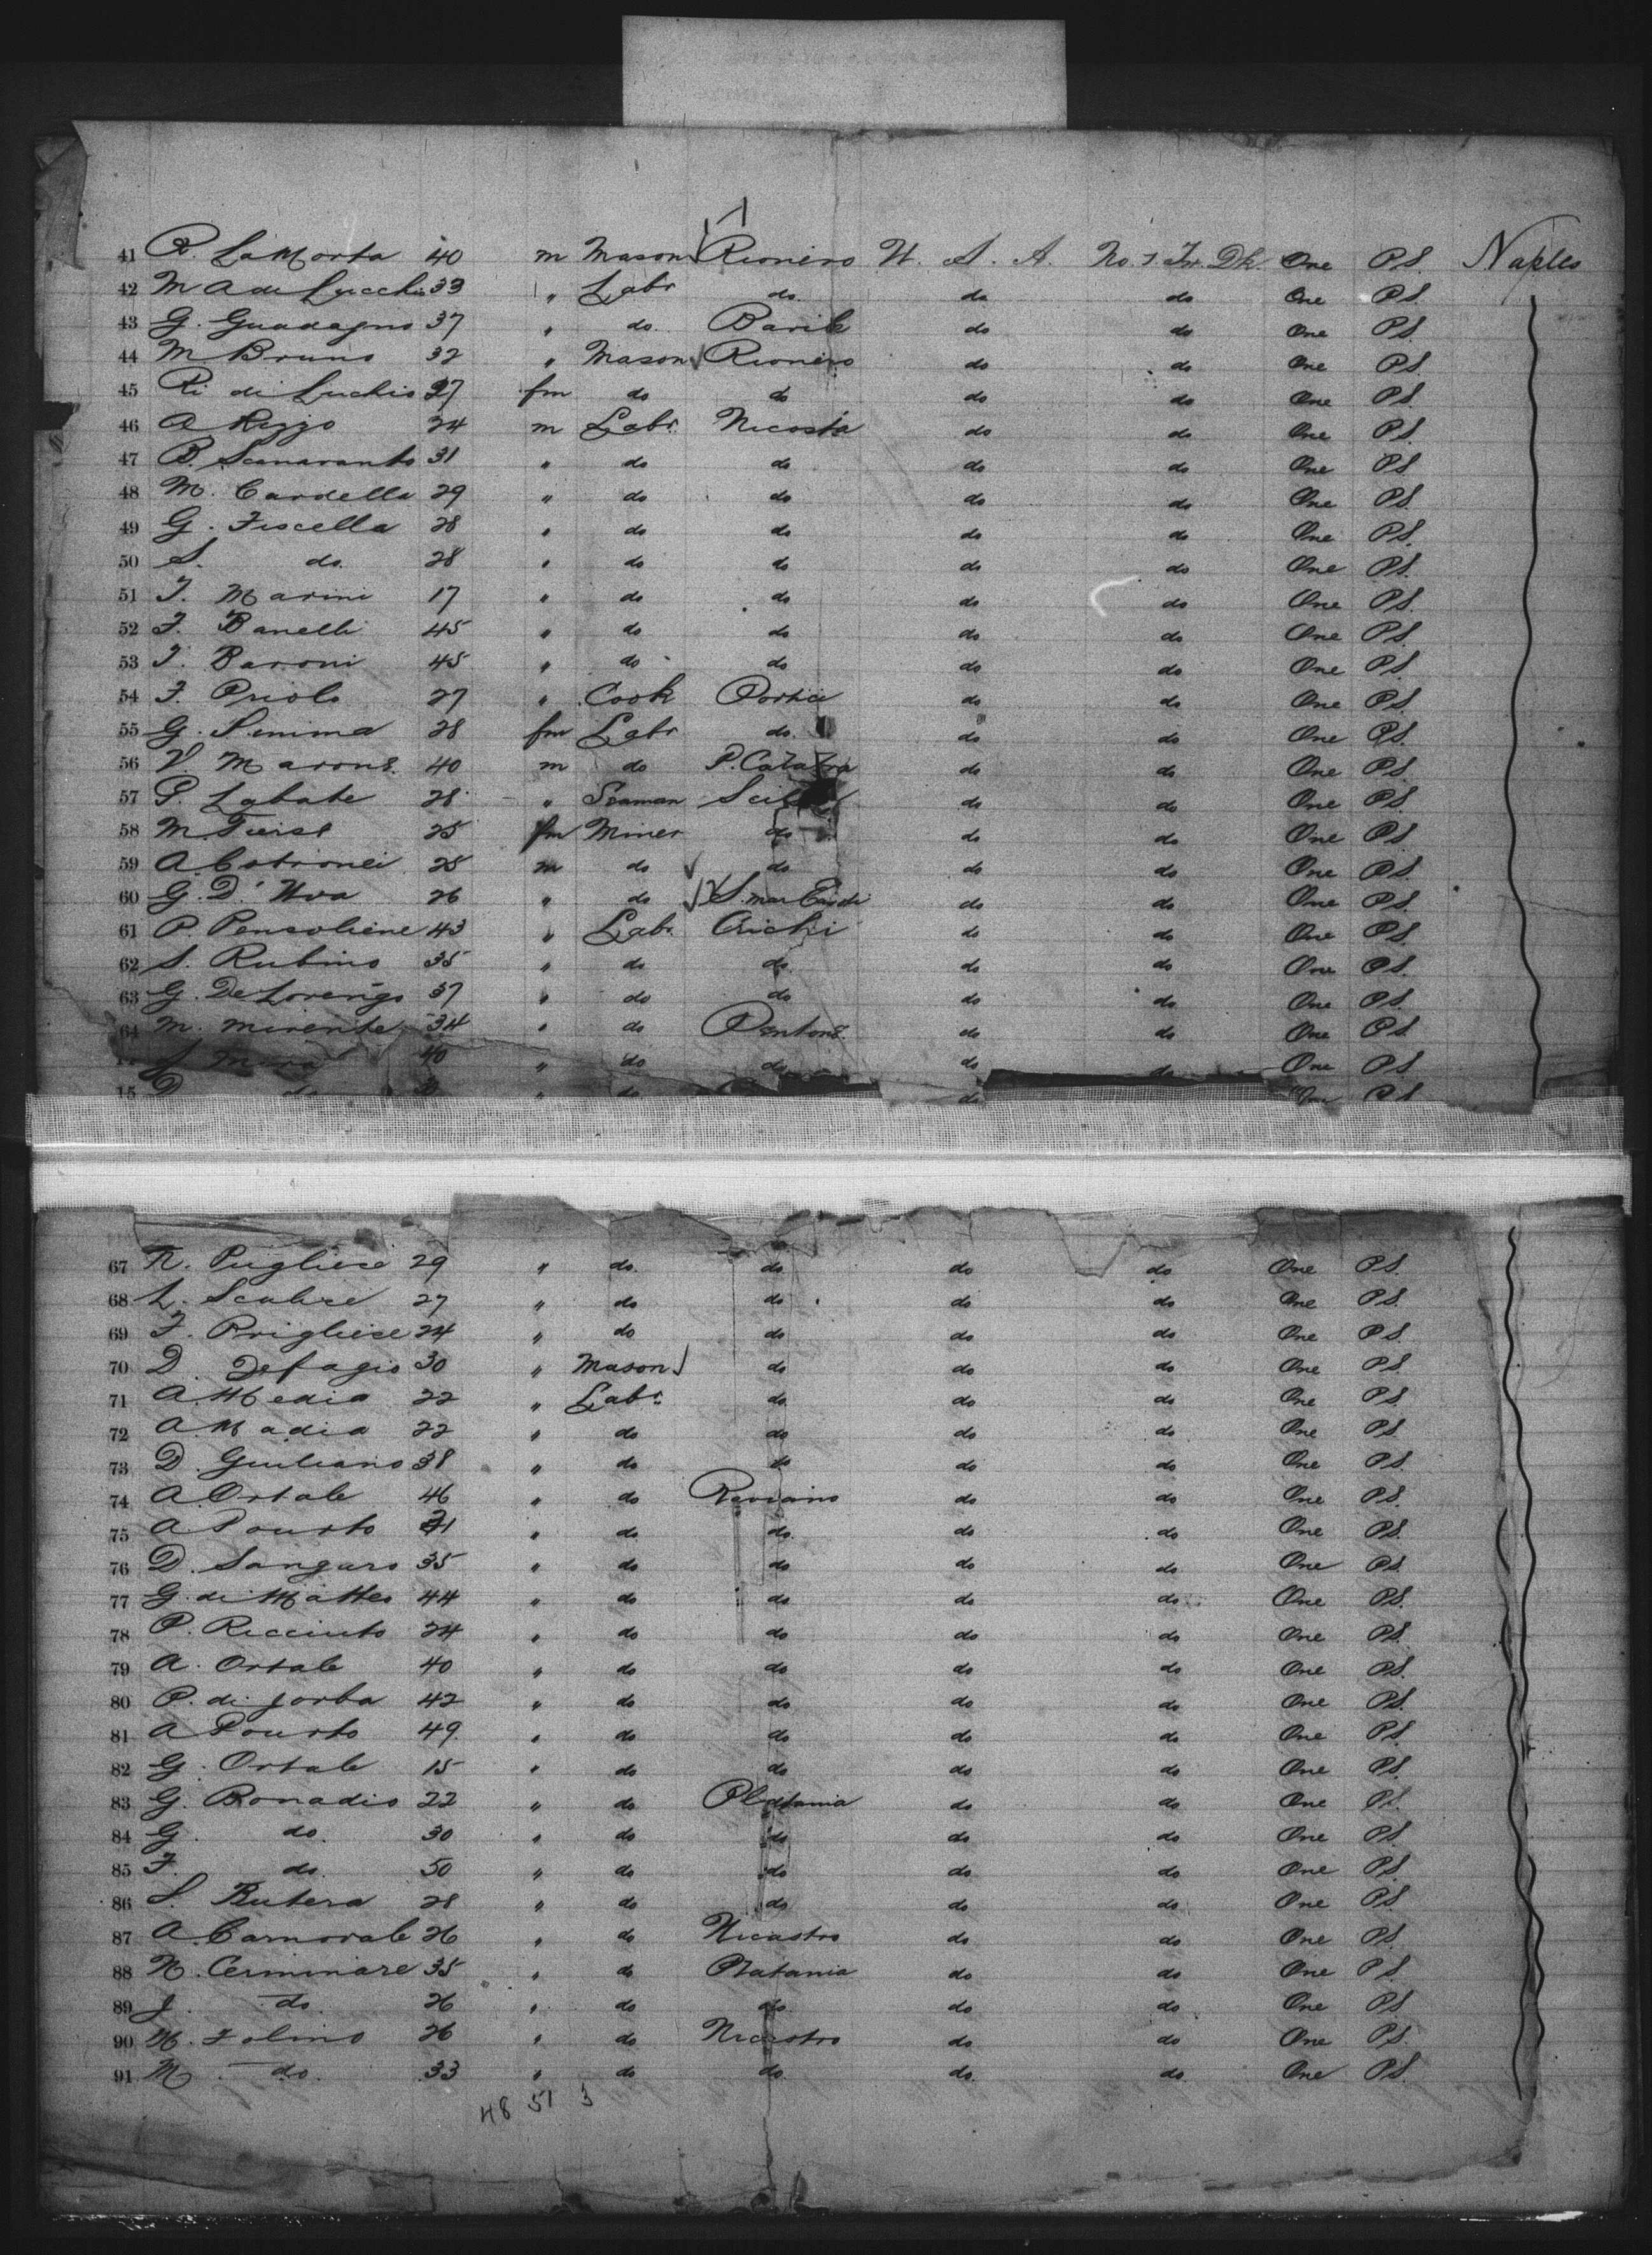 41 R. LaMorta 40 m Mason Rionero U. S. A. No. 1 Fr. Dk. One P.S. Naples
42 M A de Lucchi 33 " Labr do. do do One P.S.
43 G. Guadagno 37 " do. Barile do do One P.S.
44 M. Bruno 32 " Mason Rionero do do One P.S.
45 Ri di Luchio 27 fm do do do do One P.S.
46 A Rizzo 24 m Labr. Nicosia do do One P.S.
47 B. Scanaranto 31 " do do do do One P.S.
48 M. Cardella 29 " do do do do One P.S.
49 G. Fiscella 28 " do do do do One P.S.
50 S. do. 28 " do do do do One P.S.
51 T. Marini 17 " do do do do One P.S.
52 F. Banelli 45 " do do do do One P.S.
53 T. Baroni 45 " do do do do One P.S.
54 F. Priolo 27 " Cook Portici do do One P.S.
55 G. Simma 28 fm Labr do. do do One P.S.
56 V. Marone. 40 m do P. do do One P.S.
57 P. Labate 28 " Seaman do do One P.S.
58 M. 25 fm Miner do do do One P.S.
59 A. Cotronei 25 m do do do do One P.S.
60 G. D' Uva 26 " do do do One P.S.
61 P. Pensoliene 43 " Labr. do do One P.S.
62 S. Rubino 35 " do do. do do One P.S.
63 G. DeLorenzo 37 " do do do do One P.S.
64 M. Mirente 34 " do Pentone. do do One P.S.
40 " do do do do One P.S.
15 D do " do do One P.S.
67 R. Pugliese 29 " do. do. do do One P.S.
68 L. Scalise 27 " do do do do One P.S.
69 F. Prigliese 24 " do do do do One P.S.
70 D. Defagio 30 " Mason do do do One P.S.
71 A. Media 22 " Labr. do. do do One P.S.
72 A Madia 22 " do do do do One P.S.
73 D. Giuliano 38 " do do do do One P.S.
74 A. Ortale 46 " do do do One P.S.
75 A 21 " do do. do do One P.S.
76 D. Sangaro 35 " do do do do One P.S.
77 G. di Matteo 44 " do do do do One P.S.
78 P. Ricciuto 24 " do do do do One P.S.
79 A. Ortale 40 " do do do do One P.S.
80 P. di Jorba 42 " do do do do One P.S.
81 A 49. " do do do do One P.S.
82 G. Ortale 15 " do do do do One P.S.
83 G. Bonadio 22 " do Platania do do One P.S.
84 G. do. 30 " do do do do One P.S.
85 F. do. 50 " do do do do One P.S.
86 S. Butera 28 " do do do do One P.S.
87 A. Carnovale 26 " do Nicastro do do One P.S.
88 N. Cerminare 35 " do Platania do do One P.S.
89 J. do. 26 " do do. do do One P.S.
90 M. Folino 26 " do Nicastro do do One P.S.
91 M. do. 33 " do do. do. do. One P.S.
48 51 3